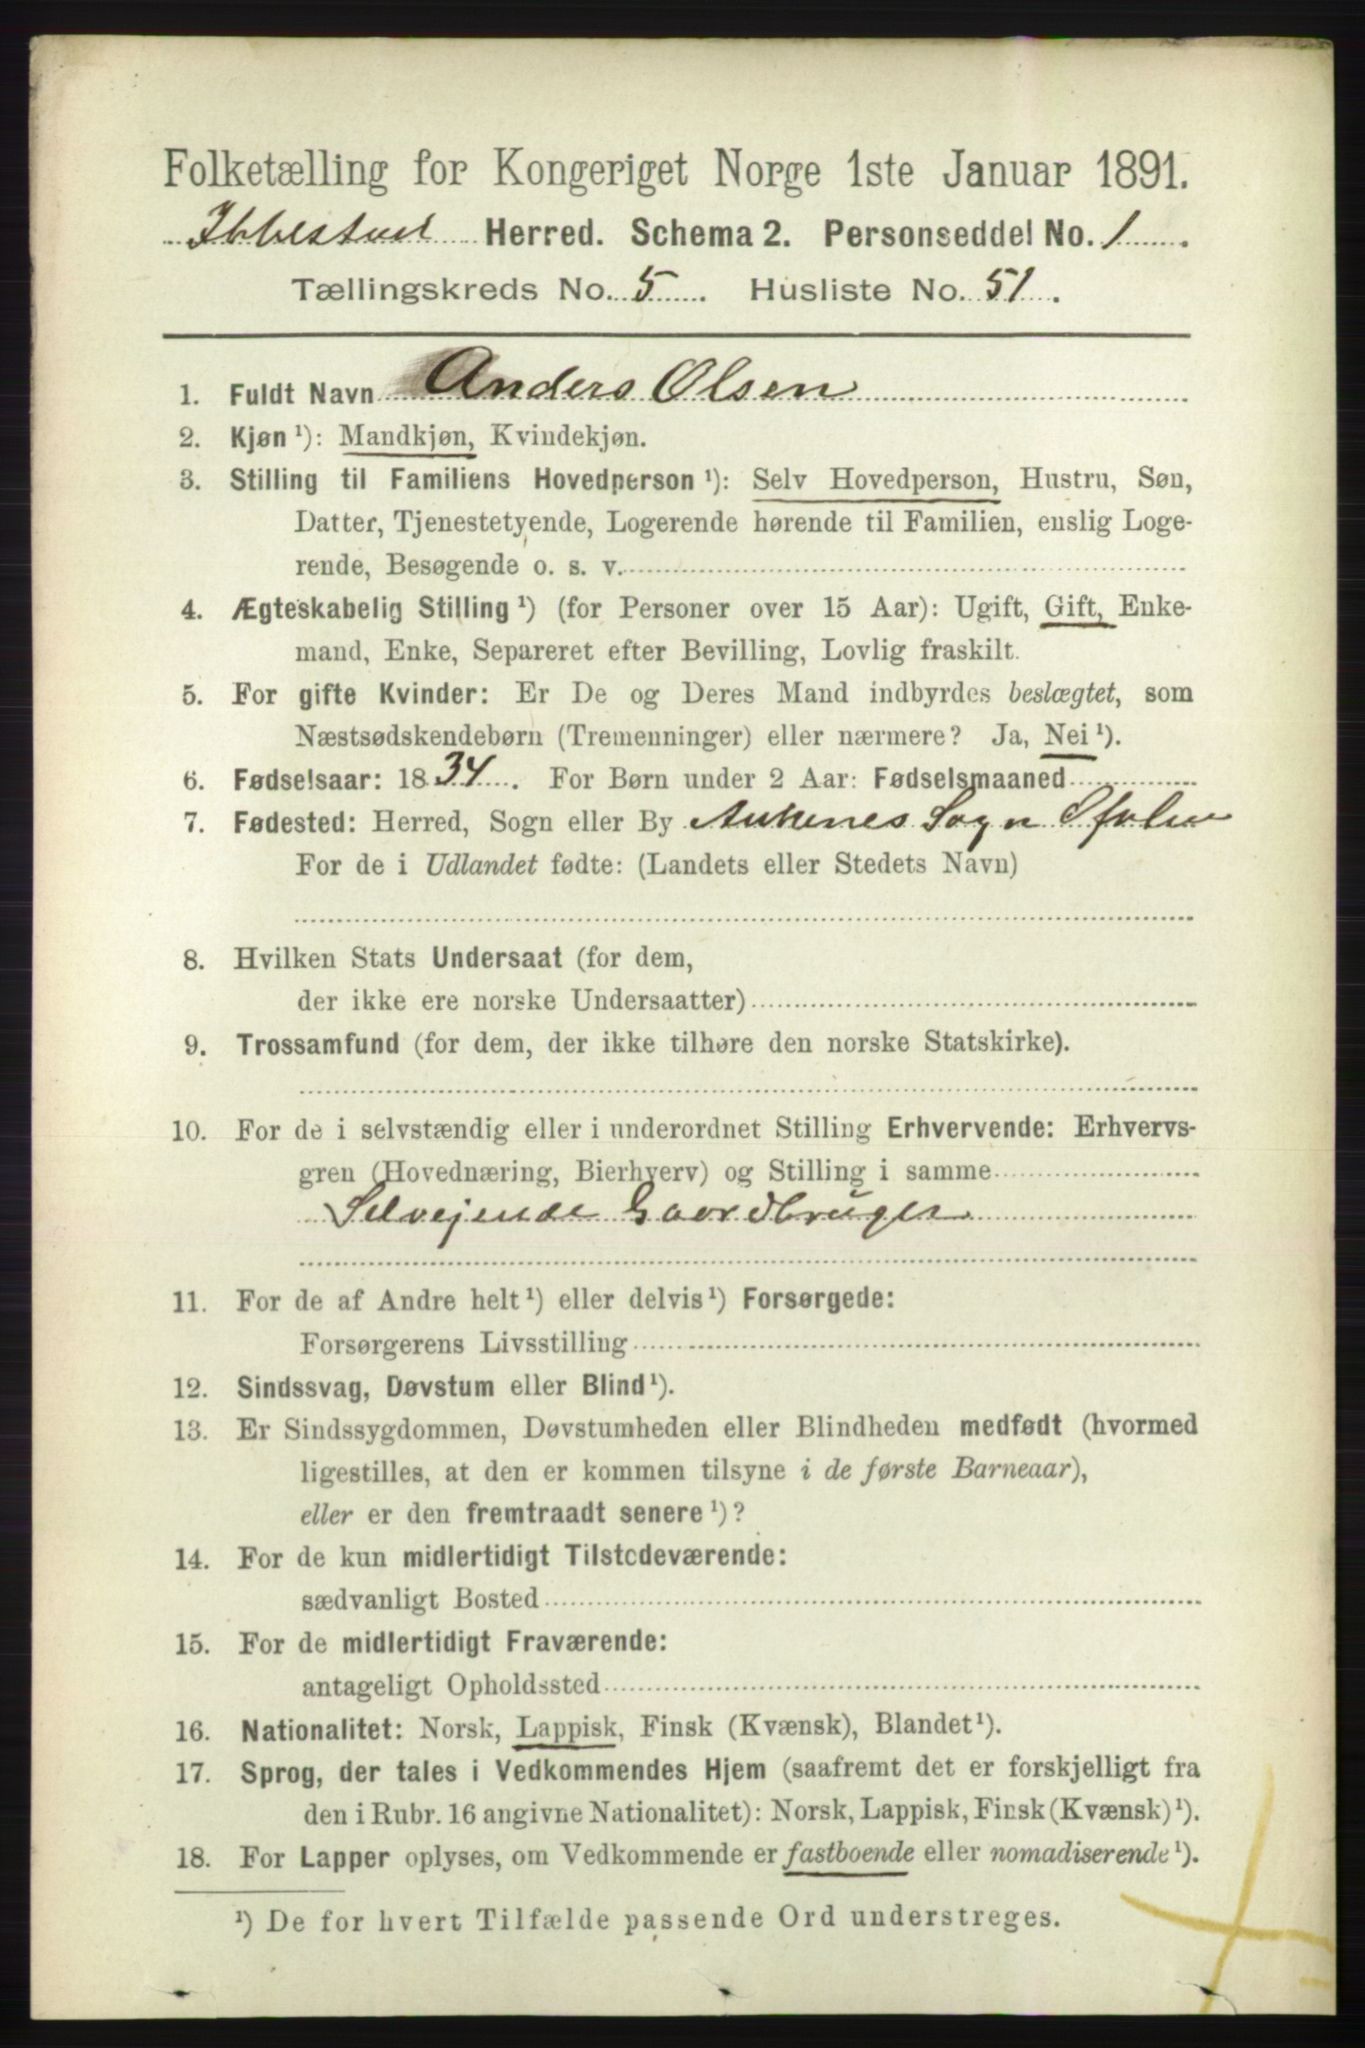 Folketælling for Kongeriget Norge 1ste Januar 1891.
Ibbestad Herred. Schema 2. Personseddel No. 1
Tællingskreds No. 5 Husliste No. 51.
1. Fuldt Navn Anders Olsen
2. Kjøn ¹): Mandkjøn, Kvindekjøn.
3. Stilling til Familiens Hovedperson ¹): Selv Hovedperson, Hustru, Søn,
Datter, Tjenestetyende, Logerende hørende til Familien, enslig Loge-
rende, Besøgende o. s. v.
4. Ægteskabelig Stilling ¹) (for Personer over 15 Aar): Ugift, Gift, Enke-
mand, Enke, Separeret efter Bevilling, Lovlig fraskilt.
5. For gifte Kvinder: Er De og Deres Mand indbyrdes beslægtet, som
Næstsødskendebørn (Tremenninger) eller nærmere? Ja, Nei ¹).
6. Fødselsaar: 1834. For Børn under 2 Aar: Fødselsmaaned
7. Fødested: Herred, Sogn eller By Ankenes Sogn Ofoten
For de i Udlandet fødte: (Landets eller Stedets Navn)
8. Hvilken Stats Undersaat (for dem,
der ikke ere norske Undersaatter)
9. Trossamfund (for dem, der ikke tilhøre den norske Statskirke).
10. For de i selvstændig eller i underordnet Stilling Erhvervende: Erhvervs-
gren (Hovednæring, Bierhverv) og Stilling i samme
Selvejende Gaardbruger
11. For de af Andre helt ¹) eller delvis ¹) Forsørgede:
Forsørgerens Livsstilling
12. Sindssvag, Døvstum eller Blind ¹).
13. Er Sindssygdommen, Døvstumheden eller Blindheden medfødt (hvormed
ligestilles, at den er kommen tilsyne i de første Barneaar),
eller er den fremtraadt senere ¹)?
14. For de kun midlertidigt Tilstedeværende:
sædvanligt Bosted
15. For de midlertidigt Fraværende:
antageligt Opholdssted
16. Nationalitet: Norsk, Lappisk, Finsk (Kvænsk), Blandet ¹).
17. Sprog, der tales i Vedkommendes Hjem (saafremt det er forskjelligt fra
den i Rubr. 16 angivne Nationalitet): Norsk, Lappisk, Finsk (Kvænsk) ¹).
18. For Lapper oplyses, om Vedkommende er fastboende eller nomadiserende ¹).
¹) De for hvert Tilfælde passende Ord understreges.